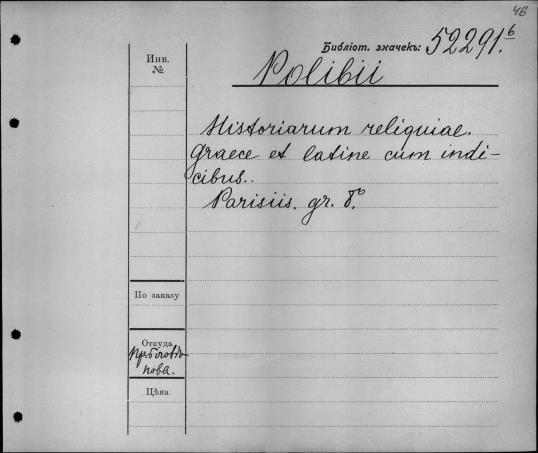 46
Библіот. значекъ: 52291.б
Инв.
№
Polibii
Historiarum reliquiae.
Graece et latine cum indi-
cibus..
Parisiis. gr. 8.º
По заказу
Откуда
нова.
Цѣна